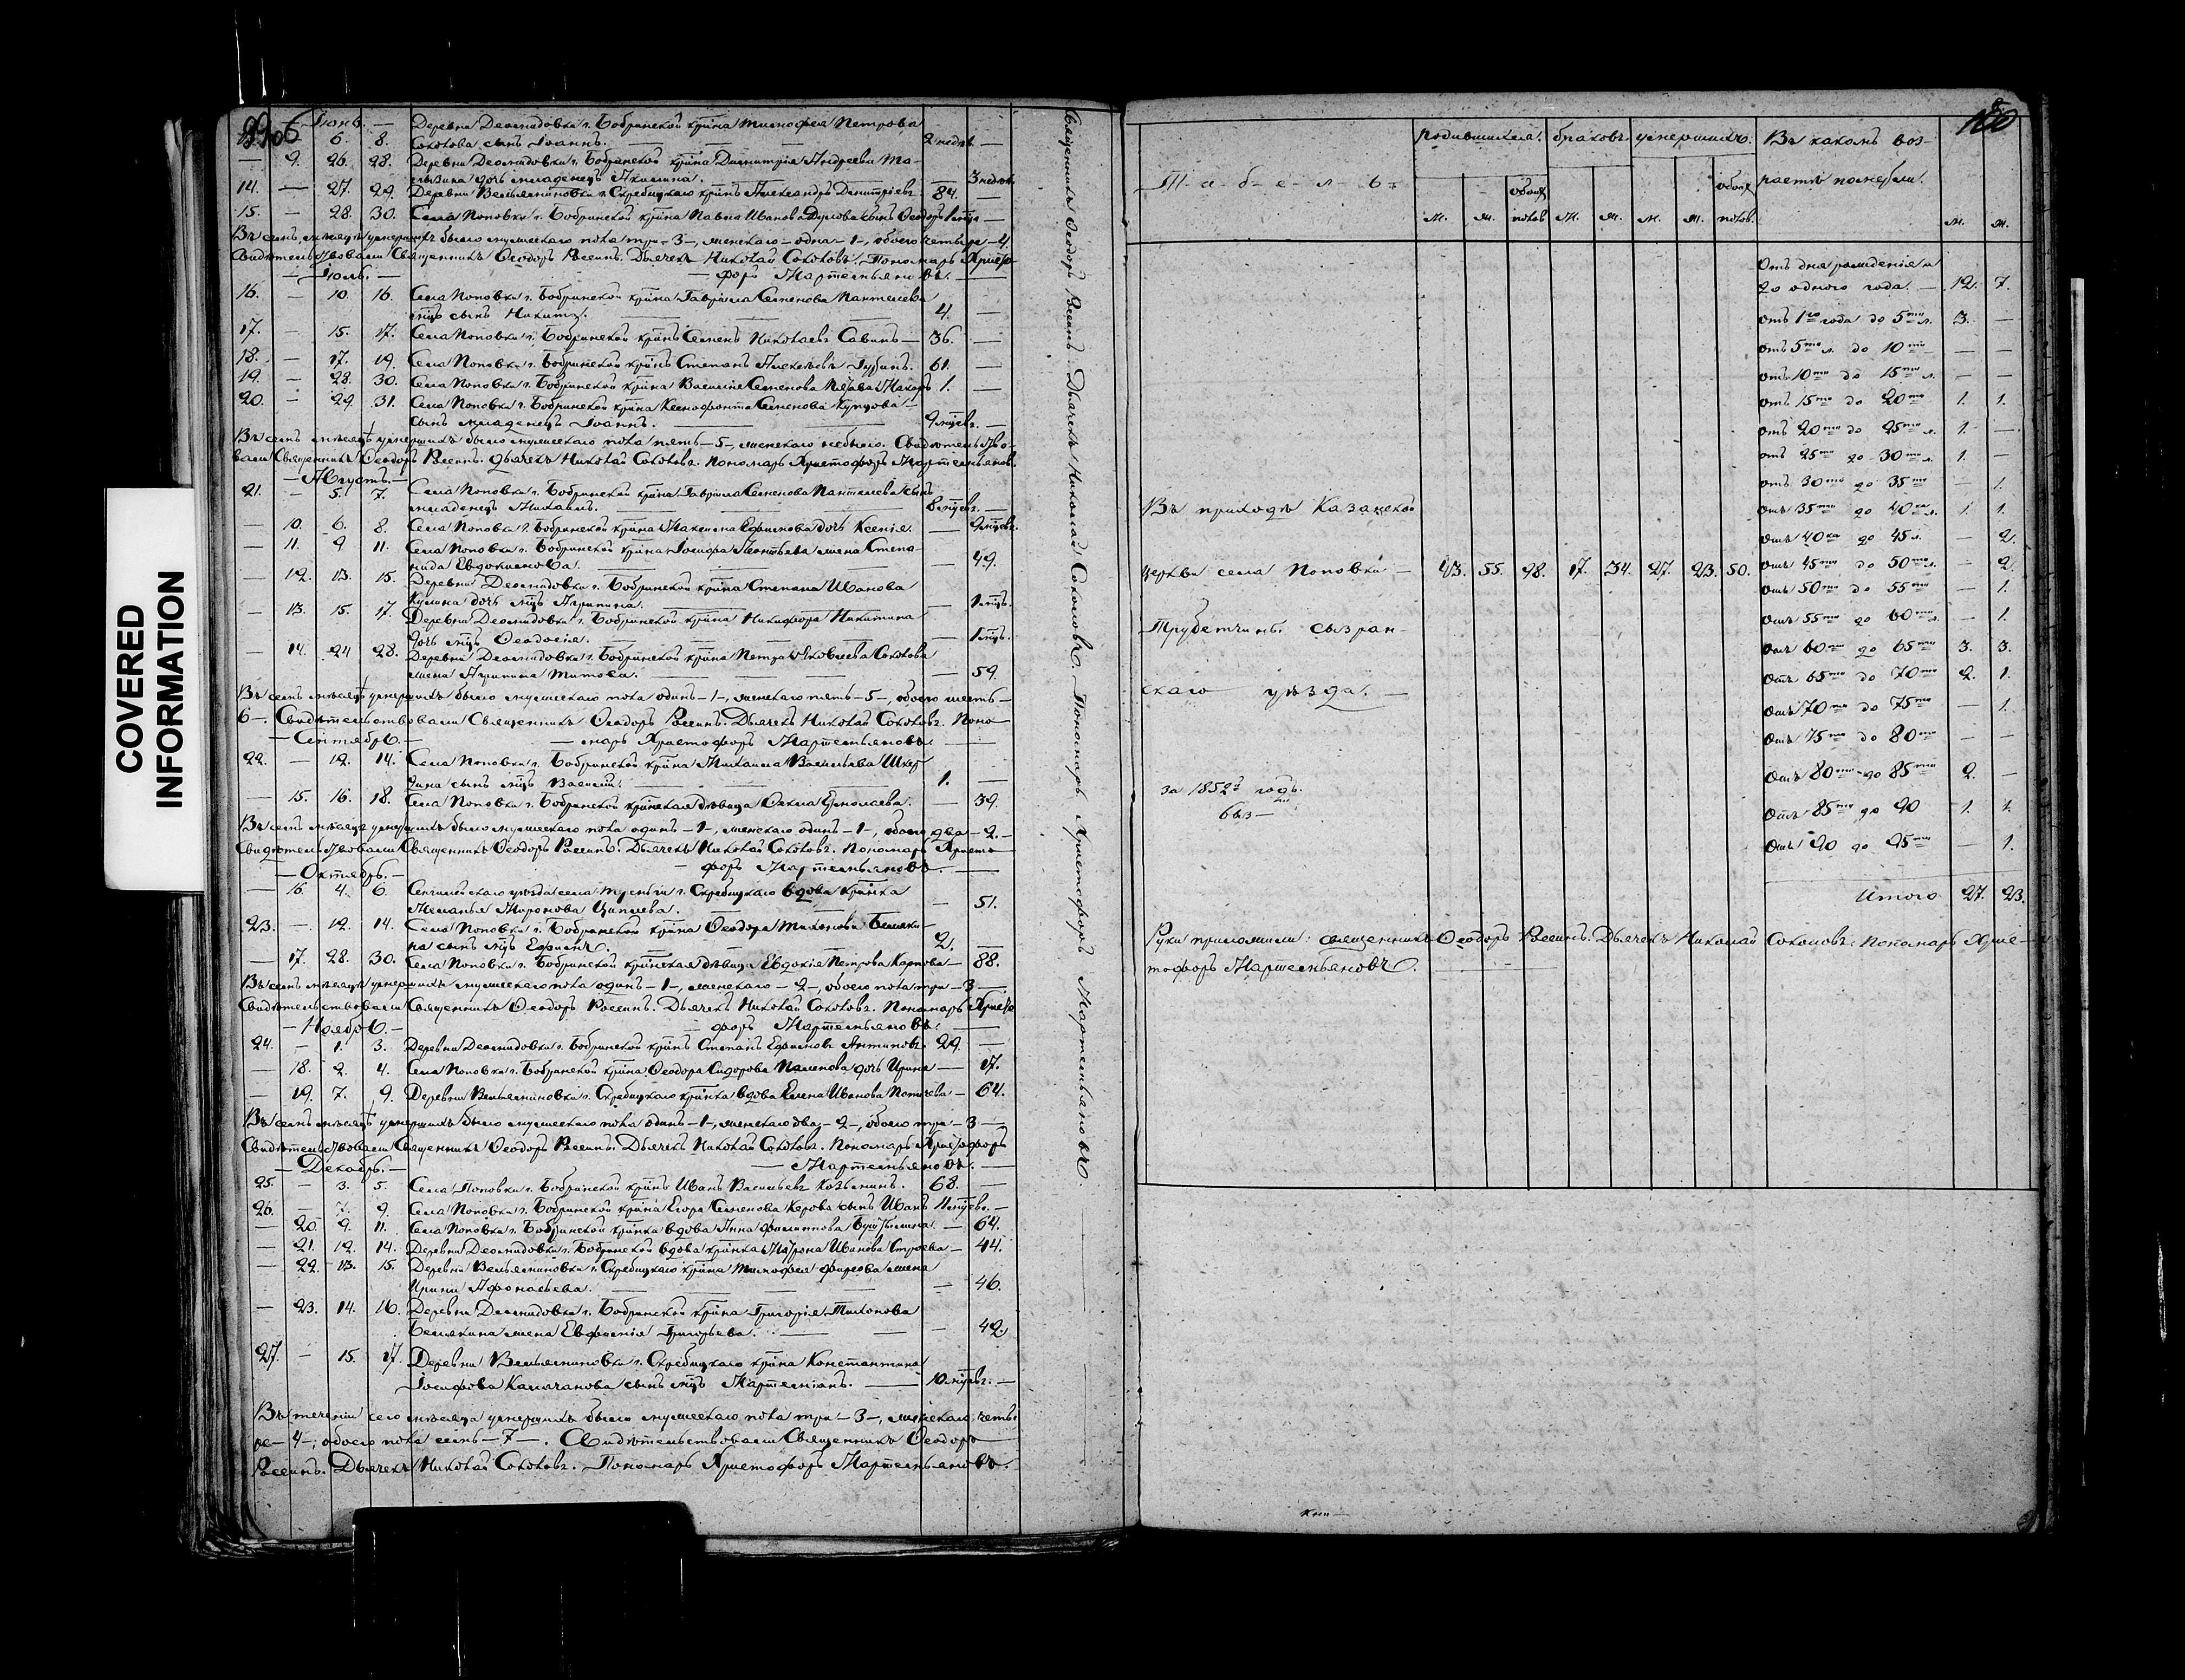 COVERED
INFORMATION
— Іюнь. —
13. — 6. 8. Деревни Деомидовки г. Бобринской кр̃іна Тимофея Петрова
Соколова сынъ Іоаннъ. — 2 недѣл. —
— 9. 26. 28. Деревни Деомидовки г. Бобринской кр̃іна Димитрія Андреева
дочь младенецъ Акилина. — 3 недѣл.
14. — 27. 29. Деревни Вельяминовки г. Скребицкаго кр̃інъ Александръ Димитріевъ 84. —
15. — 28. 30. Села Поповки г. Бобринской кр̃іна Павла Иванова сынъ Ѳеодоръ 1 мц̃а —
Въ семъ мѣсяцѣ умершихъ было мужескаго пола три — 3 —, женскаго — одна — 1 —, обоего четыре — 4.
Свидѣтельствовали Священникъ Ѳеодоръ Россинъ. Дьячекъ Николай Соколовъ. Пономарь Христо-
— Іюль. — — форъ Мартемьяновъ. —
16. — 10. 16. Села Поповки г. Бобринской кр̃іна Гавріила Семенова Пантелеева
мц̃ъ сынъ Никита. — 4. —
17. — 15. 17. Села Поповки г. Бобринской кр̃інъ Семенъ Николаевъ Савинъ — 36. —
18. — 17. 19. Села Поповки г. Бобринской кр̃інъ Степанъ Алексѣевъ Губинъ. 61. —
19. — 28. 30. Села Поповки г. Бобринской кр̃іна Василія Семенова Макаръ 1. —
20. — 29. 31. Села Поповки г. Бобринской кр̃іна Ксенофонта Семенова Купцова —
сынъ младенецъ Іоаннъ. — 9 мц̃евъ. —
Въ семъ мѣсяцѣ умершихъ было мужескаго пола пять — 5 —, женскаго небыло. Свидѣтельство-
вали Священникъ Ѳеодоръ Россинъ. Дьячекъ Николай Соколовъ. Пономарь Христофоръ Мартемьяновъ.
— Августъ. —
21. — 5. 7. Села Поповки г. Бобринской кр̃іна Гавріила Семенова Пантелеева сынъ
младенецъ Михаилъ. — 8 мц̃евъ. —
— 10. 6. 8. Села Поповки г. Бобринской кр̃іна Максима Ефимова дочь Ксенія. — 9 мц̃евъ.
— 11. 9. 11. Села Поповки г. Бобринской кр̃іна Іосифа Леонтьева жена Степа-
нида Евдокимова. — 49.
— 12. 13. 15. Деревни Деомидовки г. Бобринской кр̃іна Степана Иванова
дочь мц̃ъ Агрипина. — 1 мц̃ъ.
— 13. 15. 17. Деревни Деомидовки г. Бобринской кр̃іна Никифора Никитина
дочь мц̃ъ Ѳеодосія. — 1 мц̃ъ.
— 14. 24. 28. Деревни Деомидовки г. Бобринской кр̃іна Петра Яковлева Соколова
жена Агрипина Титова. — 59.
Въ семъ мѣсяцѣ умершихъ было мужескаго пола одинъ — 1 —, женскаго пять — 5 —, обоего шесть —
6 —. Свидѣтельствовали Священникъ Ѳеодоръ Россинъ. Дьячекъ Николай Соколовъ. Поно-
— Сентябрь. — — марь Христофоръ Мартемьяновъ. —
22. — 12. 14. Села Поповки г. Бобринской кр̃іна Михаила Васильева
сынъ мц̃ъ Василій. — 1. —
— 15. 16. 18. Села Поповки г. Бобринской кр̃інская дѣвица Ѳекла Ермолаева. — 39.
Въ семъ мѣсяцѣ умершихъ было мужескаго пола одинъ — 1 —, женскаго одинъ — 1 —, обоего два — 2. —
Свидѣтельствовали Священникъ Ѳеодоръ Россинъ. Дьячекъ Николай Соколовъ. Пономарь Христо-
— Октябрь. — — форъ Мартемьяновъ. —
— 16. 4. 6. уѣзда села г. Скребицкаго вдова кр̃інка
Меланья Миронова — 51.
23. — 12. 14. Села Поповки г. Бобринской кр̃іна Ѳеодора Тихонова Беляки-
на сынъ мц̃ъ Ефимъ. 2. —
— 17. 28. 30. Села Поповки г. Бобринской кр̃інская дѣвица Евдокія Петрова Карпова — 88.
Въ семъ мѣсяцѣ умершихъ мужескаго пола одинъ — 1 —, женскаго — 2 —, обоего пола три — 3 —
Свидѣтельствовали Священникъ Ѳеодоръ Россинъ. Дьячекъ Николай Соколовъ. Пономарь Христо-
— Ноябрь. — — форъ Мартемьяновъ. —
24. — 1. 3. Деревни Деомидовки г. Бобринской кр̃інъ Степанъ Ефимовъ Антиповъ. 29. —
— 18. 2. 4. Села Поповки г. Бобринской кр̃іна Ѳеодора Сидорова дочь Ирина — 17.
— 19. 7. 9. Деревни Вельяминовки г. Скребицкаго кр̃інка вдова Елена Иванова — 64.
Въ семъ мѣсяцѣ умершихъ было мужескаго пола одинъ — 1 —, женскаго два — 2 —, обоего три — 3 —
Свидѣтельствовали Священникъ Ѳеодоръ Россинъ. Дьячекъ Николай Соколовъ. Пономарь Христофоръ
— Декабрь. — — Мартемьяновъ. —
25. — 3. 5. Села Поповки г. Бобринской кр̃інъ Иванъ Васильевъ 68. —
26. — 7. 9. Села Поповки г. Бобринской кр̃іна Егора Семенова сынъ Иванъ 11 мц̃евъ. —
— 20. 9. 11. Села Поповки г. Бобринской кр̃інка вдова Анна Филиппова — 64.
— 21. 12. 14. Деревни Деомидовки г. Бобринской вдова кр̃інка Матрона Иванова — 44.
— 22. 13. 15. Деревни Вельяминовки г. Скребицкаго кр̃іна Тимофея Фирсова жена
Ирина Афонасьева. — 46.
— 23. 14. 16. Деревни Деомидовки г. Бобринской кр̃іна Григорія Тихонова
Белякина жена Евфимія Григорьева. — 42.
27. — 15. 17. Деревни Вельяминовки г. Скребицкаго кр̃іна Константина
Іосифова сынъ мц̃ъ Мартеміанъ. — 10 мц̃евъ. —
Въ теченіи сего мѣсяца умершихъ было мужескаго пола три — 3 —, женскаго четы-
ре — 4 —; обоего пола семь — 7 —. Свидѣтельствовали Священникъ Ѳеодоръ
Россинъ. Дьячекъ Николай Соколовъ. Пономарь Христофоръ Мартемьяновъ.
Священникъ Ѳеодоръ Россинъ Дьячекъ Николай Соколовъ. Пономарь Христофоръ Мартемьяновъ
Т-а-б-е-л-ь родившихся. браковъ. умершихъ. Въ какомъ воз-
растѣ померли.
м. ж. обоихъ половъ м. ж. м. ж. обоихъ половъ. м. ж.
Отъ дня рожденія и
до одного года. — 12. 7.
отъ 1го года до 5ти л. 3. —
отъ 5ти л. до 10ти — —
отъ 10ти до 15ти л. — —
отъ 15ти до 20ти 1. 1.
отъ 20ти до 25ти л. 1. —
отъ 25ти до 30ти л. 1. —
отъ 30ти до 35ти — 1.
Въ приходѣ Казанской отъ 35ти до 40ка л. 1. 1.
отъ 40ка до 45 л. — 2.
церкви села Поповки — 43. 55. 98. 17. 34. 27. 23. 50. отъ 45ти до 50ти л. — 2.
отъ 50ти до 55ти — 1.
Трубетчины сызран- отъ 55ти до 60ти л. — 1.
отъ 60ти до 65ти 3. 3.
скаго уѣзда. — отъ 65ти до 70ти 2. 1.
отъ 70ти до 75ти — 1.
отъ 75ти до 80ти — —
за 1852й годъ. отъ 80ти до 85ти 2. —
отъ 85ти до 90 1. 1.
отъ 90 до 95ти — 1.
Итого 27. 23.
Руки приложили: священникъ Ѳеодоръ Россинъ. Дьячекъ Николай Соколовъ. Пономарь Хрис-
тофоръ Мартемьяновъ.